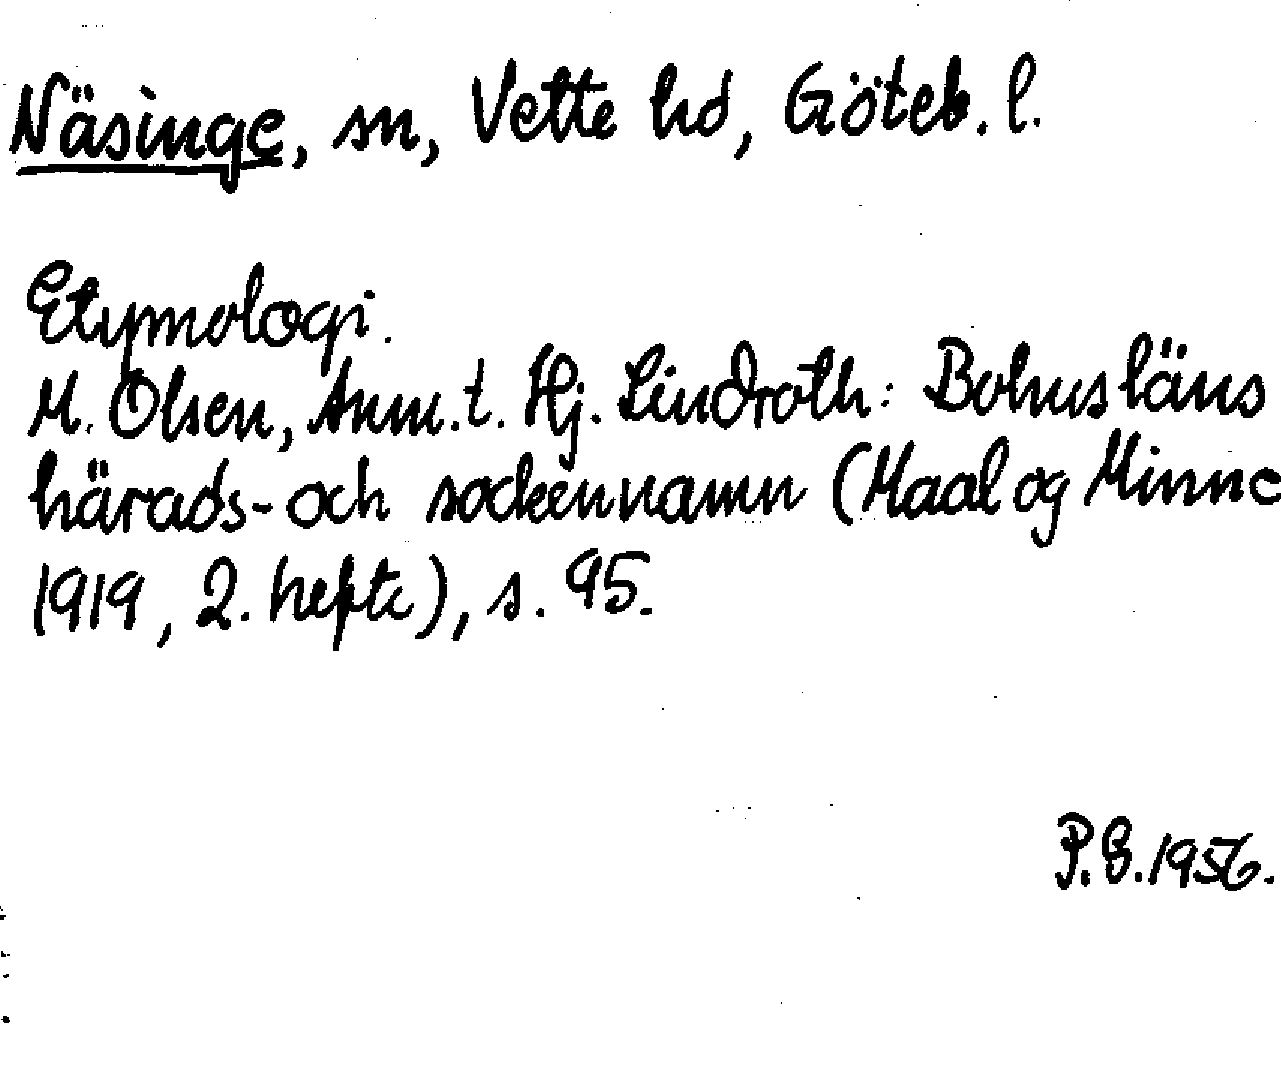 Näsinge, sn, Vette hd, Göteb. l.
Etymologi.
M. Olsen, Anm. t. Hj. Lindroth: Bohusläns
härads- och sockennamn (Maal og Minne
1919, 2. hefte), s. 95.
P.E. 1956.